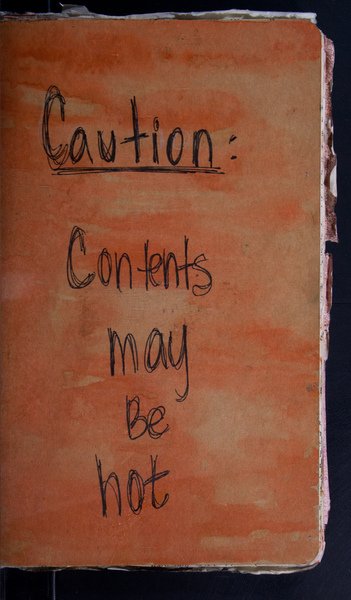 Caution:
Contents
may
Be
hot